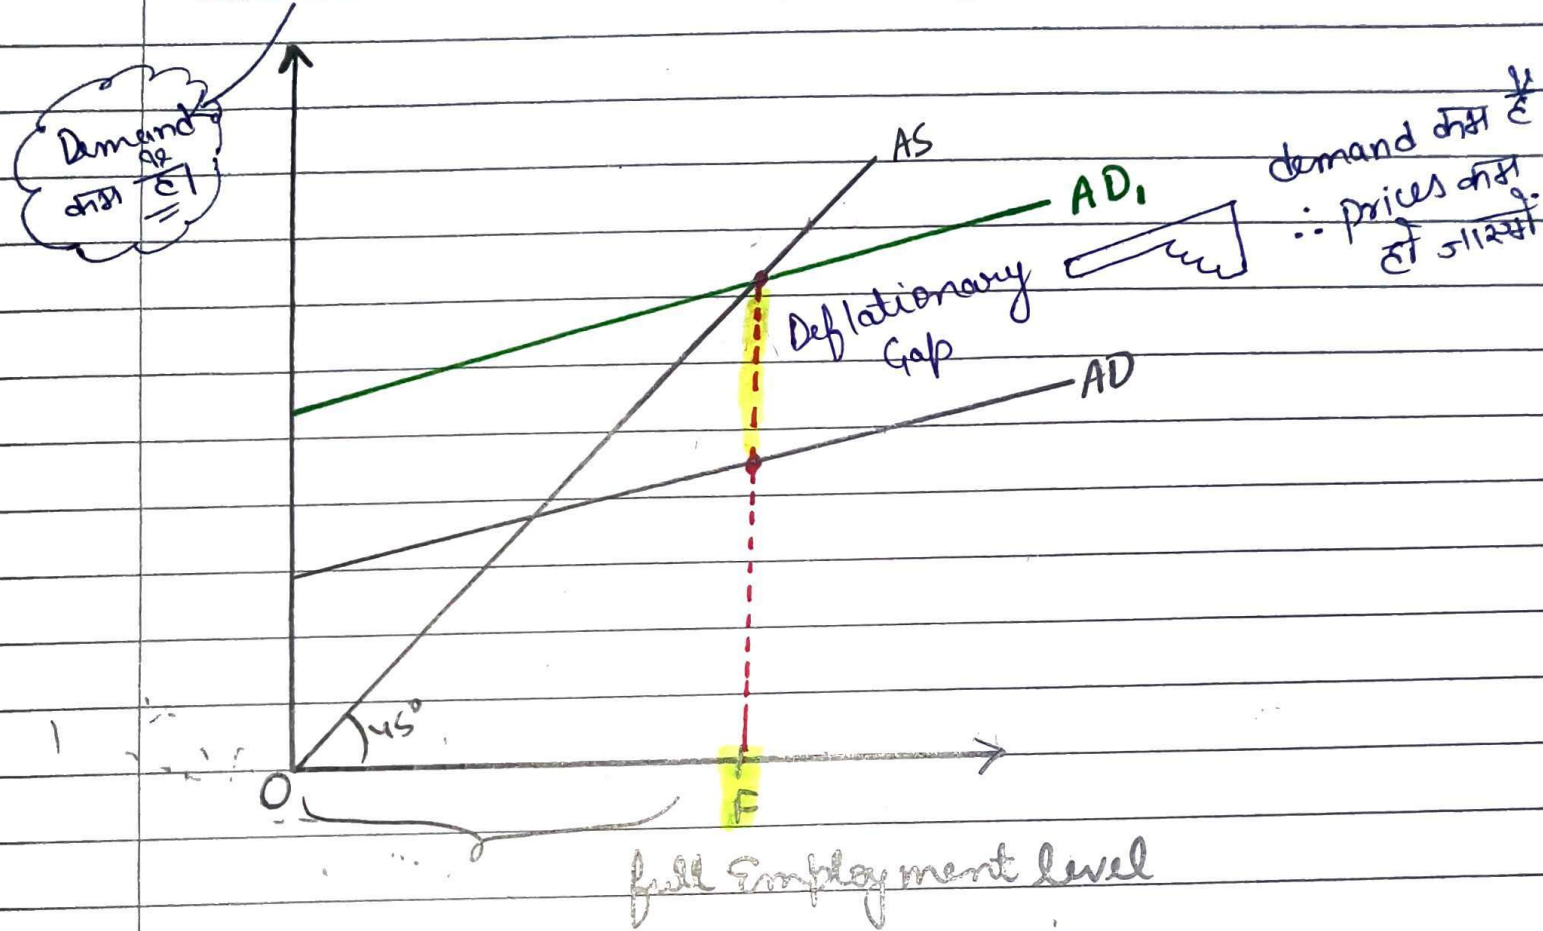 Demand
कम है।
AS
AD₁
demand कम है
∴ prices कम
हो जाएगी
Deflationary
Gap
AD
45°
O
F
full Employment level